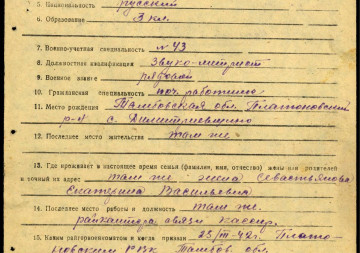 5. Национальность русский
6. Образование 3 кл.
7. Военно-учетная специальность №43
8. Должностная квалификация Звуко-метрист
9. Военное звание рядовой
10. Гражданская специальность
11. Место рождения Тамбовская обл. Платоновский
р-н с. Димитриевщино
12. Последнее место жительства там же.
13. Где проживает в настоящее время семья (фамилия, имя, отчество) жены или родителей
и точный их адрес там же - жена Севастьянова
Екатерина Васильевна
14. Последнее место работы и должность там же.
райконтора связи кассир.
15. Каким райгорвоенкоматом и когда призван 25/III-42г. Плато-
новским РВК Тамбов. обл.